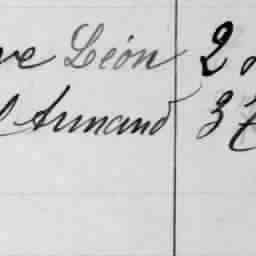 ve Léon 2
l Armand 3